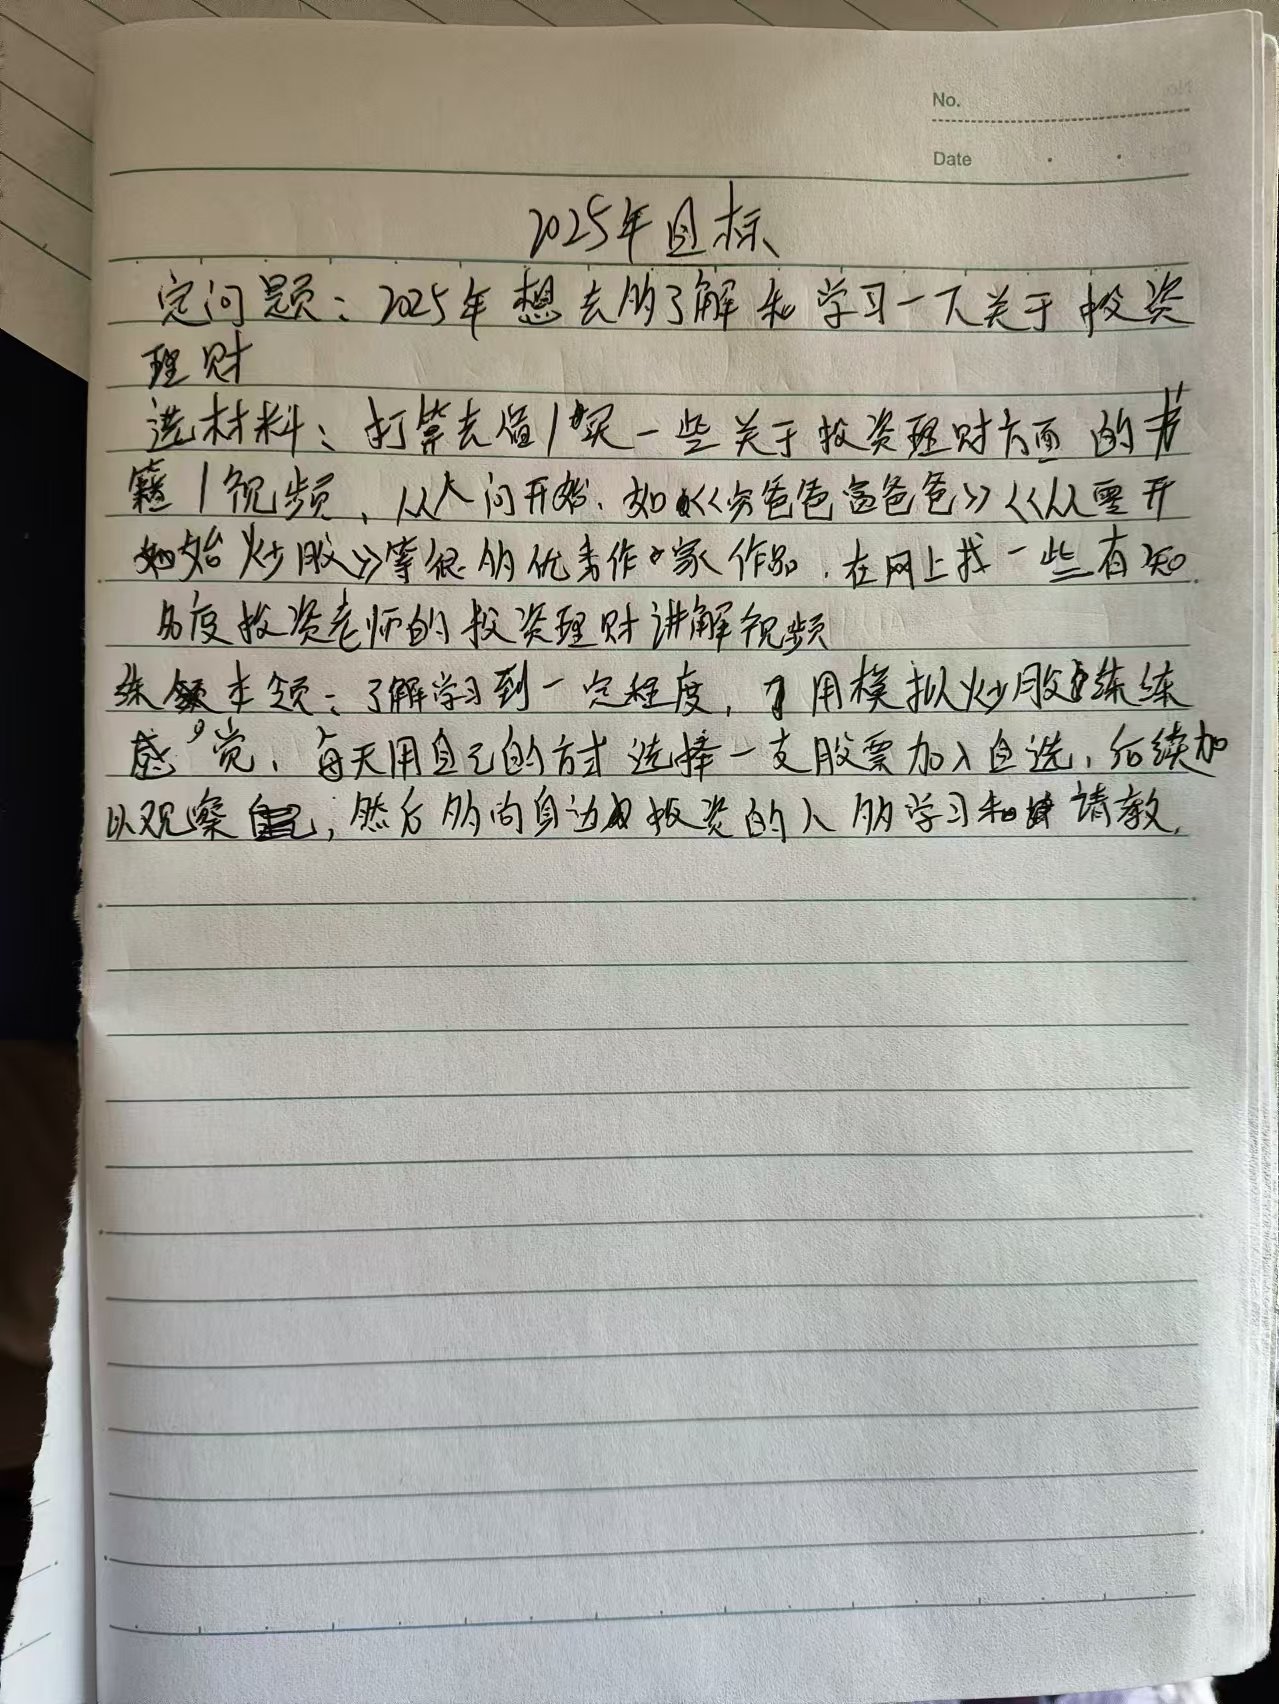 No.
Date
2025年目标
定问题：2025年想去多了解和学习一下关于投资
理财
选材料：打算去借/买一些关于投资理财方面的书
籍/视频，从入门开始，如《穷爸爸富爸爸》《从零开
始炒股》等很多优秀作家作品，在网上找一些有知
名度投资老师的投资理财讲解视频
练本领：了解学习到一定程度，用模拟炒股练练
感觉，每天用自己的方式选择一支股票加入自选，后续加
以观察，然后多向身边投资的人多学习和请教，